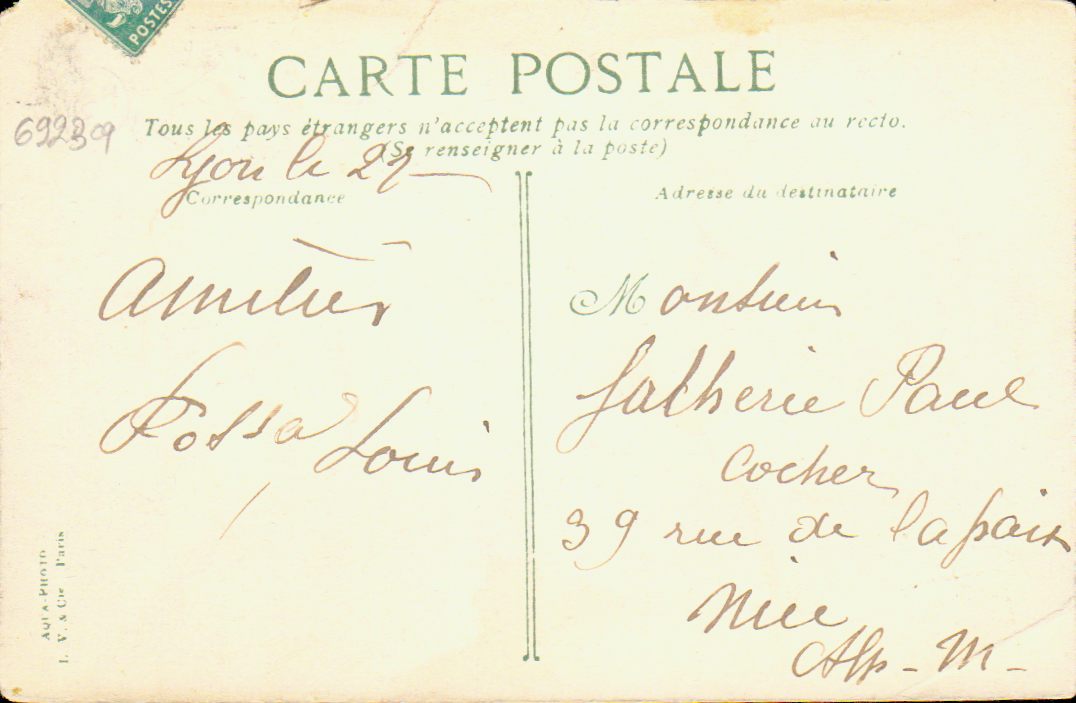 POSTES
CARTE POSTALE
Tous les pays étrangers n'acceptent pas la correspondance au recto.
(Se renseigner à la poste)
692309
Lyon le 27
Correspondance
Amitiés
Fossa Louis
Adresse du destinataire
Monsieur
Paul
Cocher
39 rue de la paix
Nice
Alp-M-
AQUA-PHOTO
L. V. & Cie Paris